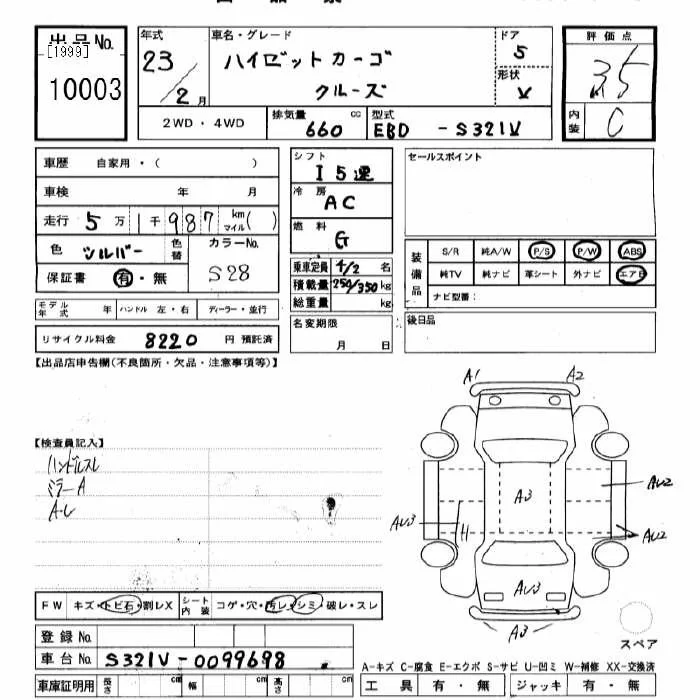 出品No.
[1999]
10003
年式
23/2月
車名・グレード
ハイゼットカーゴ
クルーズ
ドア
5
形状
V
評価点
3.5
内装
C
2WD・4WD
排気量
660 cc
型式
EBD - S321V
車歴 自家用・( )
車検 年 月
走行 5万1千987 km マイル( )
色 シルバー 色替
カラーNo.
S28
保証書 有・無
モデル年式 年 ハンドル 左・右 ディーラー・並行
リサイクル料金 8220 円 預託済
シフト
I5速
冷房
AC
燃料
G
乗車定員 4/2 名
積載量 250/350 kg
総重量 kg
名変期限
月 日
セールスポイント
装備品
S/R 純A/W P/S P/W ABS
純TV 純ナビ 革シート 外ナビ エアB
ナビ型番:
後日品
【出品店申告欄(不良箇所・欠品・注意事項等)】
【検査員記入】
ハンドルスレ
ミラーA
A-U
A1
A2
A3
AU2
AU3
AU2
AU3
A3
スペア
FW キズ・トビ石・割レX シート内装 コゲ・穴・汚レ・シミ・破レ・スレ
登録No.
車台No. S321V-0099698
車庫証明用 長さ cm 幅 cm 高さ cm
A-キズ C-腐食 E-エクボ S-サビ U-凹ミ W-補修 XX-交換済
工具 有・無 ジャッキ 有・無